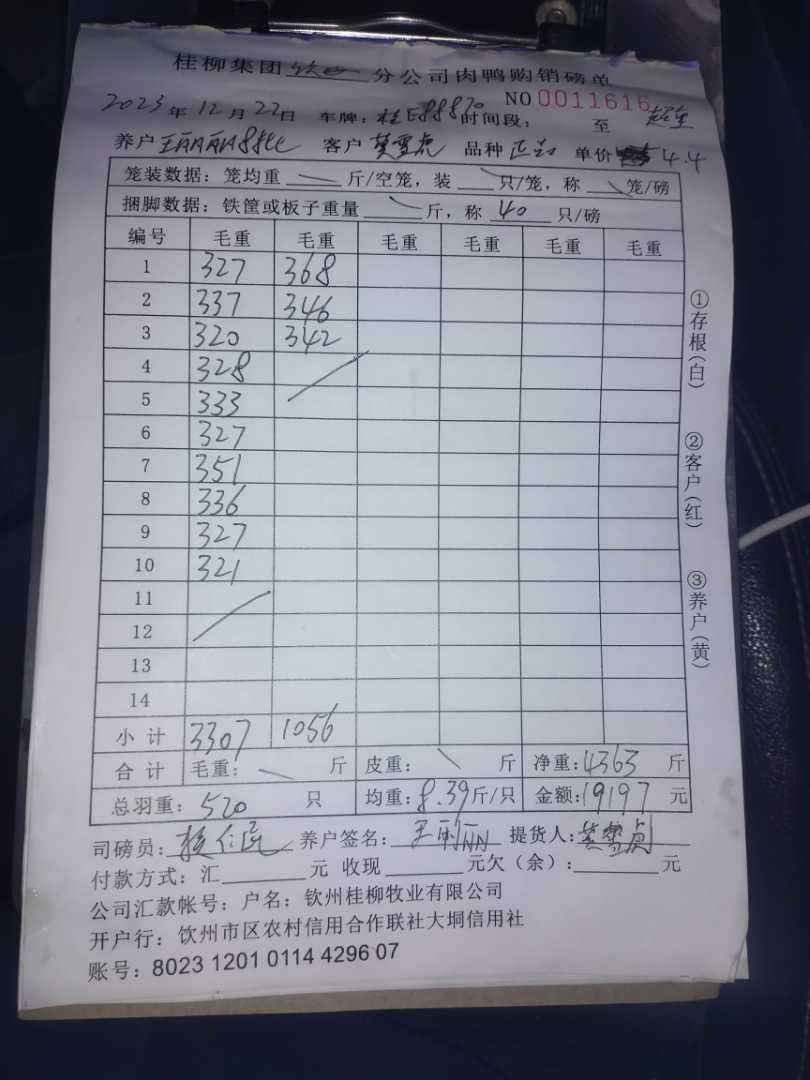 桂柳集团 钦州 分公司肉鸭购销磅单
NO 0011616
2023年12月22日 车牌：桂E88870 时间段： 至
养户 客户 莫雪虎 品种 正 单价 4.4
笼装数据：笼均重 斤/空笼，装 只/笼，称 笼/磅
捆脚数据：铁筐或板子重量 斤，称 40 只/磅
编号 毛重 毛重 毛重 毛重 毛重 毛重
1 327 368
2 337 346
3 320 342
4 328
5 333
6 327
7 351
8 336
9 327
10 321
11
12
13
14
小计 3307 1056
合计 毛重： 斤 皮重： 斤 净重：4363 斤
总羽重：520 只 均重：8.39斤/只 金额：19197 元
司磅员： 养户签名： 提货人：
付款方式：汇 元 收现 元欠（余）： 元
公司汇款帐号：户名：钦州桂柳牧业有限公司
开户行：饮州市区农村信用合作联社大垌信用社
账号：8023 1201 0114 4296 07
①存根（白）
②客户（红）
③养户（黄）